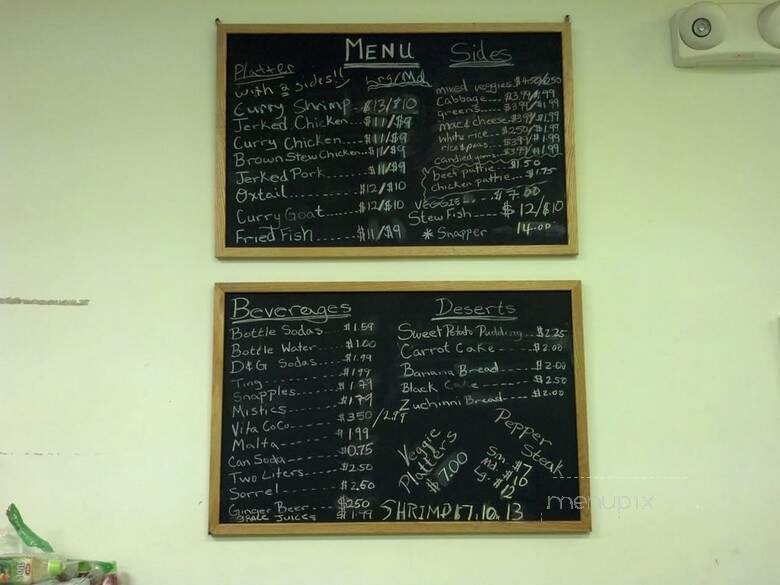 MENU
Platter
with 2 sides!!
Lrg/Md
Curry Shrimp $13/$10
Jerked Chicken... $11/$9
Curry Chicken.... $11/$9
Brown Stew Chicken... $11/$9
Jerked Pork...... $11/$9
Oxtail.......... $12/$10
Curry Goat...... $12/$10
Fried Fish...... $11/$9
Sides
mixed veggies $4.50/2.50
Cabbage... $3.99/1.99
greens.... $3.99/$1.99
mac & cheese $3.99/$1.99
white rice.. $2.50/$1.99
rice & peas... $3.99/$1.99
candied yams $3.99/$1.99
beef pattie... $1.50
chicken pattie... $1.75
VEGGIE... $7.00
Stew Fish.... $12/$10
* Snapper 14.00
Beverages
Bottle Sodas... $1.59
Bottle Water... $1.00
D&G Sodas $1.99
Ting $1.99
Snapples $1.79
Mistics $1.79
Vita CoCo $3.50/2.99
Malta $1.99
Can Soda $0.75
Two Liters $2.50
Sorrel $2.50
Ginger Beer $2.50
GRACE JUICES $1.99
Deserts
Sweet Potato Pudding $2.25
Carrot Cake $2.00
Banana Bread $2.00
Black Cake $2.50
Zuchinni Bread $2.00
Veggie
Platters
$7.00
Pepper
Steak
Sm $7
Md $10
Lg $12
SHRIMP 17.10.13
menupix